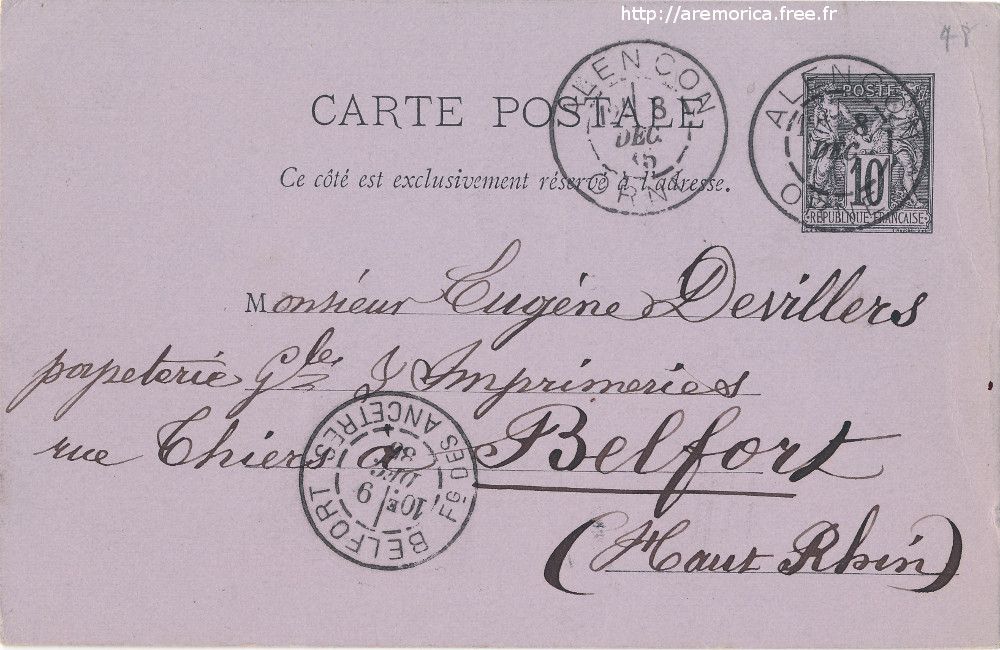 http://aremorica.free.fr
48
CARTE POSTALE
Ce côté est exclusivement réservé à l'adresse.
ALENCON
8
DEC
ORNE
ALENCON
8
DEC
ORNE
POSTE
10
RÉPUBLIQUE FRANÇAISE
Monsieur Eugéne Devillers
papeterie Gle & Imprimeries
rue Thiers à Belfort
(Haut Rhin)
BELFORT FG DES ANCETRES
10E
9
DEC